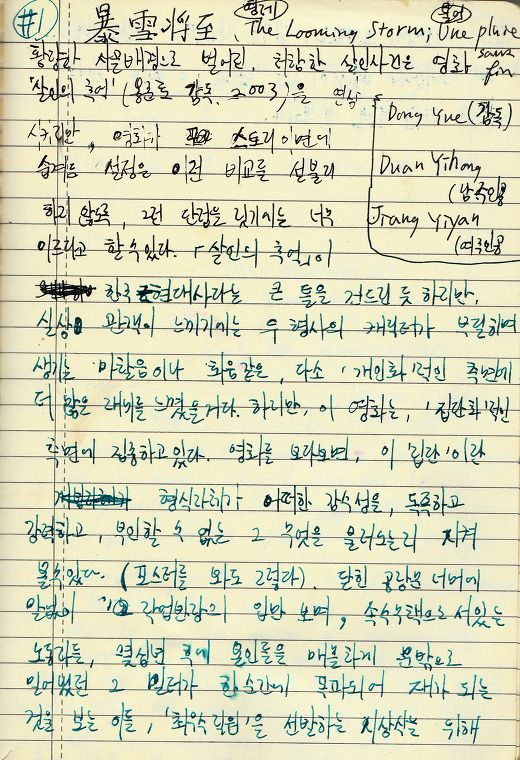 #1
暴雪将至, 영제 The Looming Storm; 불어 Une pluie sans fin
황량한 시골배경으로 벌어진, 허람한 살인사건은 영화
'살인의 추억' (봉준호 감독, 2003)을 연상
Dong Yue (감독)
Duan Yihong (남주인공
Jiang Yiyan (여주인공
시키지만, 영화가 스토리 이면에
숨겨둔 설정은 이런 비교를 섣불리
하지 않도록, 그런 단정을 짓기에는 너무
이르다고 할 수 있다. 「살인의 추억」이
한국 현대사라는 큰 틀을 건드린 듯 하지만,
실상 관객이 느끼기에는 두 형사의 캐릭터가 부딪히며
생기는 마찰음이나 화음같은, 다소 '개인화'적인 측면에
더 많은 재미를 느꼈을거다. 하지만, 이 영화는, '집단화'적인
측면에 집중하고있다. 영화를 보다보면, 이 '집단'이란
형식자체가 어떠한 감수성을, 독특하고
강력하고, 부인할 수 없는 그 무엇을 불러오는지 지켜
볼수있다. (포스터를 봐도 그렇다). 닫힌 공장문 너머에
말없이 작업반장의 입만 보며, 속수무책으로 서있는
노동자들, 몇십년 후에 올인들을 매몰차게 문밖으로
밀어냈던 그 일터가 한순간에 폭파되어 재가 되는
것을 보는 이들, '최우수 직원'을 선발하는 시상식을 위해